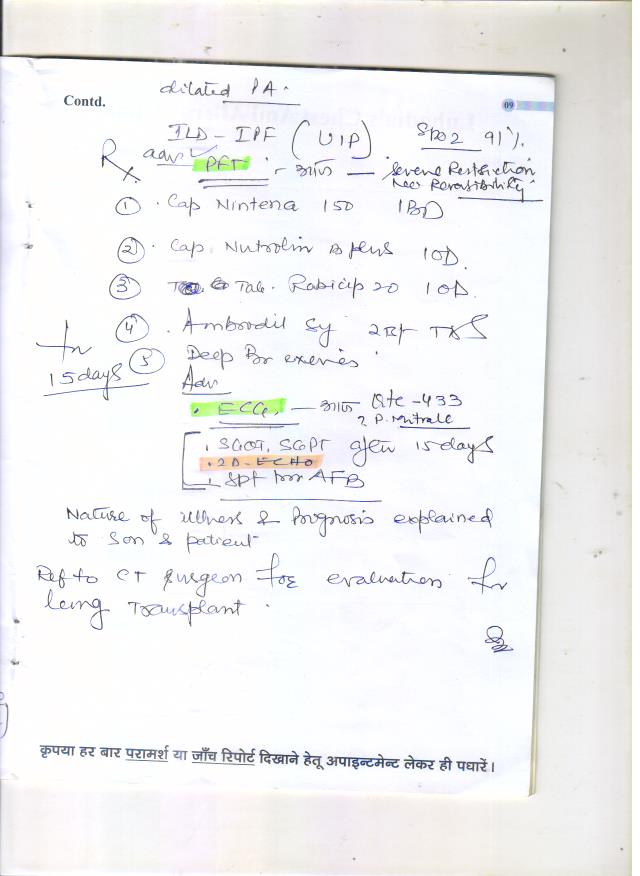 Contd.
dilated PA.
09
ILD - IPF (UIP) SpO2 91%.
Rx adv PFT - आज - Severe Restriction
Reversibility
① Cap Nintena 150 1BD
② Cap. Nutrolin B plus 1OD.
③ Tab. Rabicip 20 1OD.
④ Ambrodil Sy TDS
for 15 days
⑤ Deep Br
Adv
. ECG, - आज Qtc - 433
? P. Mitrale
. SGOT, SGPT after 15 days
. 2D-ECHO
. Spt for AFB
Nature of illness & Prognosis explained
to Son & patient
Ref to CT Surgeon for evaluation for
lung Transplant.
कृपया हर बार परामर्श या जाँच रिपोर्ट दिखाने हेतू अपाइन्टमेन्ट लेकर ही पधारें।